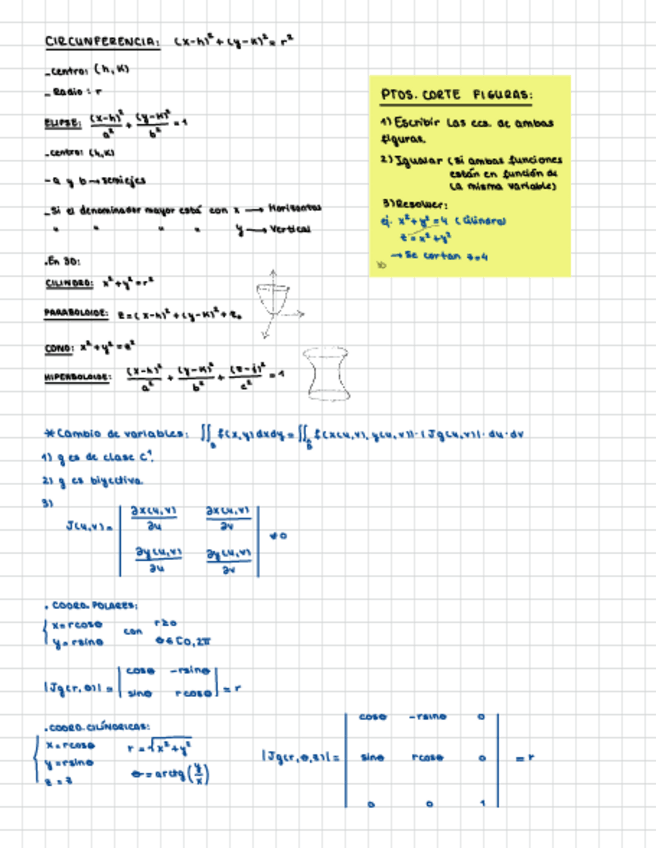 CIRCUNFERENCIA: (x-h)² + (y-k)² = r²
_centro: (h,k)
_ Radio : r
ELIPSE: (x-h)²/a² + (y-k)²/b² = 1
_centro: (h,k)
-a y b → semiejes
_Si el denominador mayor está con x → Horizontal
" " " " y → Vertical
.En 3D:
CILINDRO: x² + y² = r²
PARABOLOIDE: z = (x-h)² + (y-k)² + z₀
CONO: x² + y² = z²
HIPERBOLOIDE: (x-h)²/a² + (y-k)²/b² + (z-j)²/c² = 1
PTOS. CORTE FIGURAS:
1) Escribir las ecs. de ambas
figuras.
2) Igualar (si ambas funciones
están en función de
la misma variable)
3) Resolver:
ej. x² + y² = 4 (cilindro)
z = x² + y²
→ Se cortan z=4
*Cambio de variables: ∬ f(x,y) dxdy = ∬ f(x(u,v), y(u,v)) · |Jg(u,v)| · du · dv
1) g es de clase C¹.
2) g es biyectiva.
3)
J(u,v) = | ∂x(u,v)/∂u ∂x(u,v)/∂v |
| ∂y(u,v)/∂u ∂y(u,v)/∂v | ≠ 0
. COORD. POLARES:
x = rcosθ
y = rsinθ
con r≥0
θ∈[0,2π
|Jg(r,θ)| = | cosθ -rsinθ |
| sinθ rcosθ | = r
. COORD. CILÍNDRICAS:
x = rcosθ r = √x²+y²
y = rsinθ
z = z θ = arctg(y/x)
|Jg(r,θ,z)| =
cosθ -rsinθ 0
sinθ rcosθ 0 = r
0 0 1